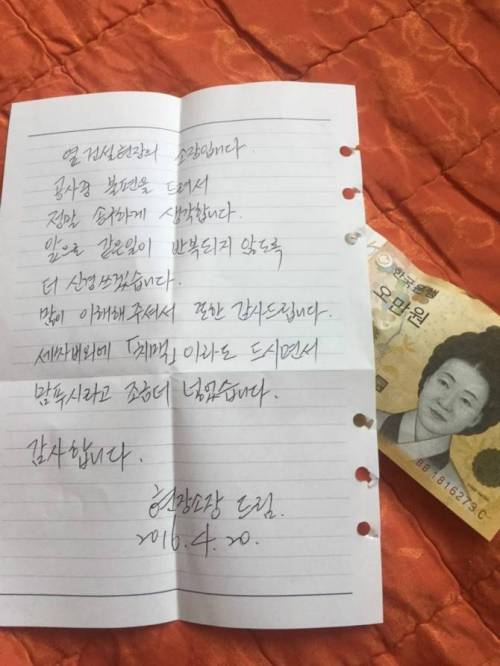 옆 건설현장의 소장입니다.
공사중 불편을 드려서
정말 송구하게 생각합니다.
앞으로 같은일이 반복되지 않도록
더 신경쓰겠습니다.
많이 이해해 주셔서 또한 감사드립니다.
세차비외에 「치맥」이라도 드시면서
맘푸시라고 조금더 넣었습니다.
감사합니다.
현장소장 드림.
2016.4.20.
한국은행
오만원
BB1816273C